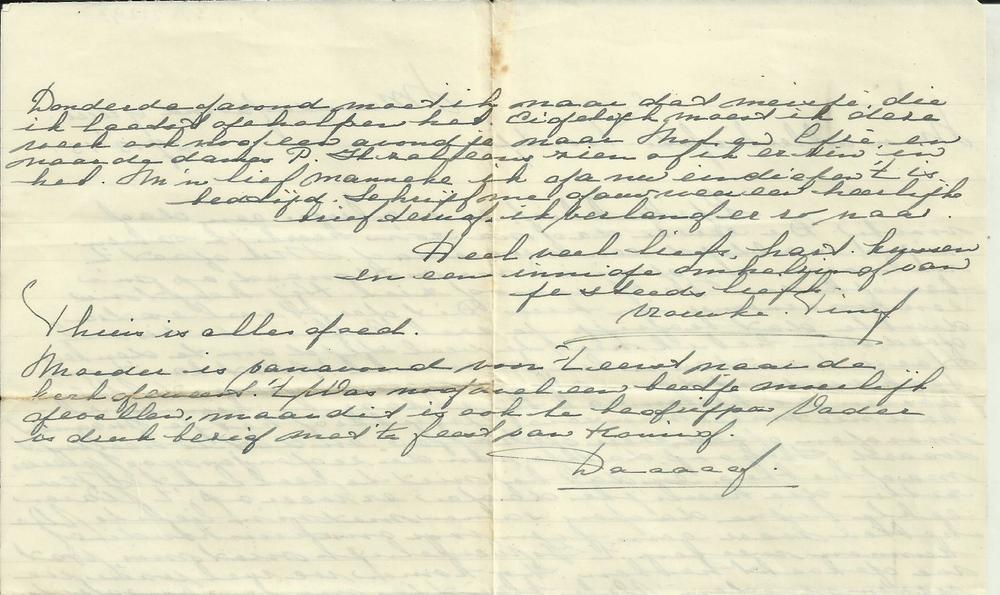 Donderdagavond moet ik naar dat meisje, die
ik laatst geholpen heb. Eigelijk moest ik deze
week ook nog een avondje naar en en
naar de dames P. Ik zal eens zien of ik er zin in
heb. M'n lief manneke ik ga nu eindigen 't is
bedtijd. Schrijf me gauw weer een heerlijke
brief terug, ik verlang er zo naar.
Heel veel liefs, hart. kussen
en een innige omhelzing van
je steeds liefh.
vrouwke. Tiny
Thuis is alles goed.
Moeder is vanavond voor 't eerst naar de
kerk geweest. 't Was nog wel een beetje moeilijk
gevallen, maar dit is ook te begrijpen Vader
is druk bezig met 't feest van Koning.
Daaaaag.